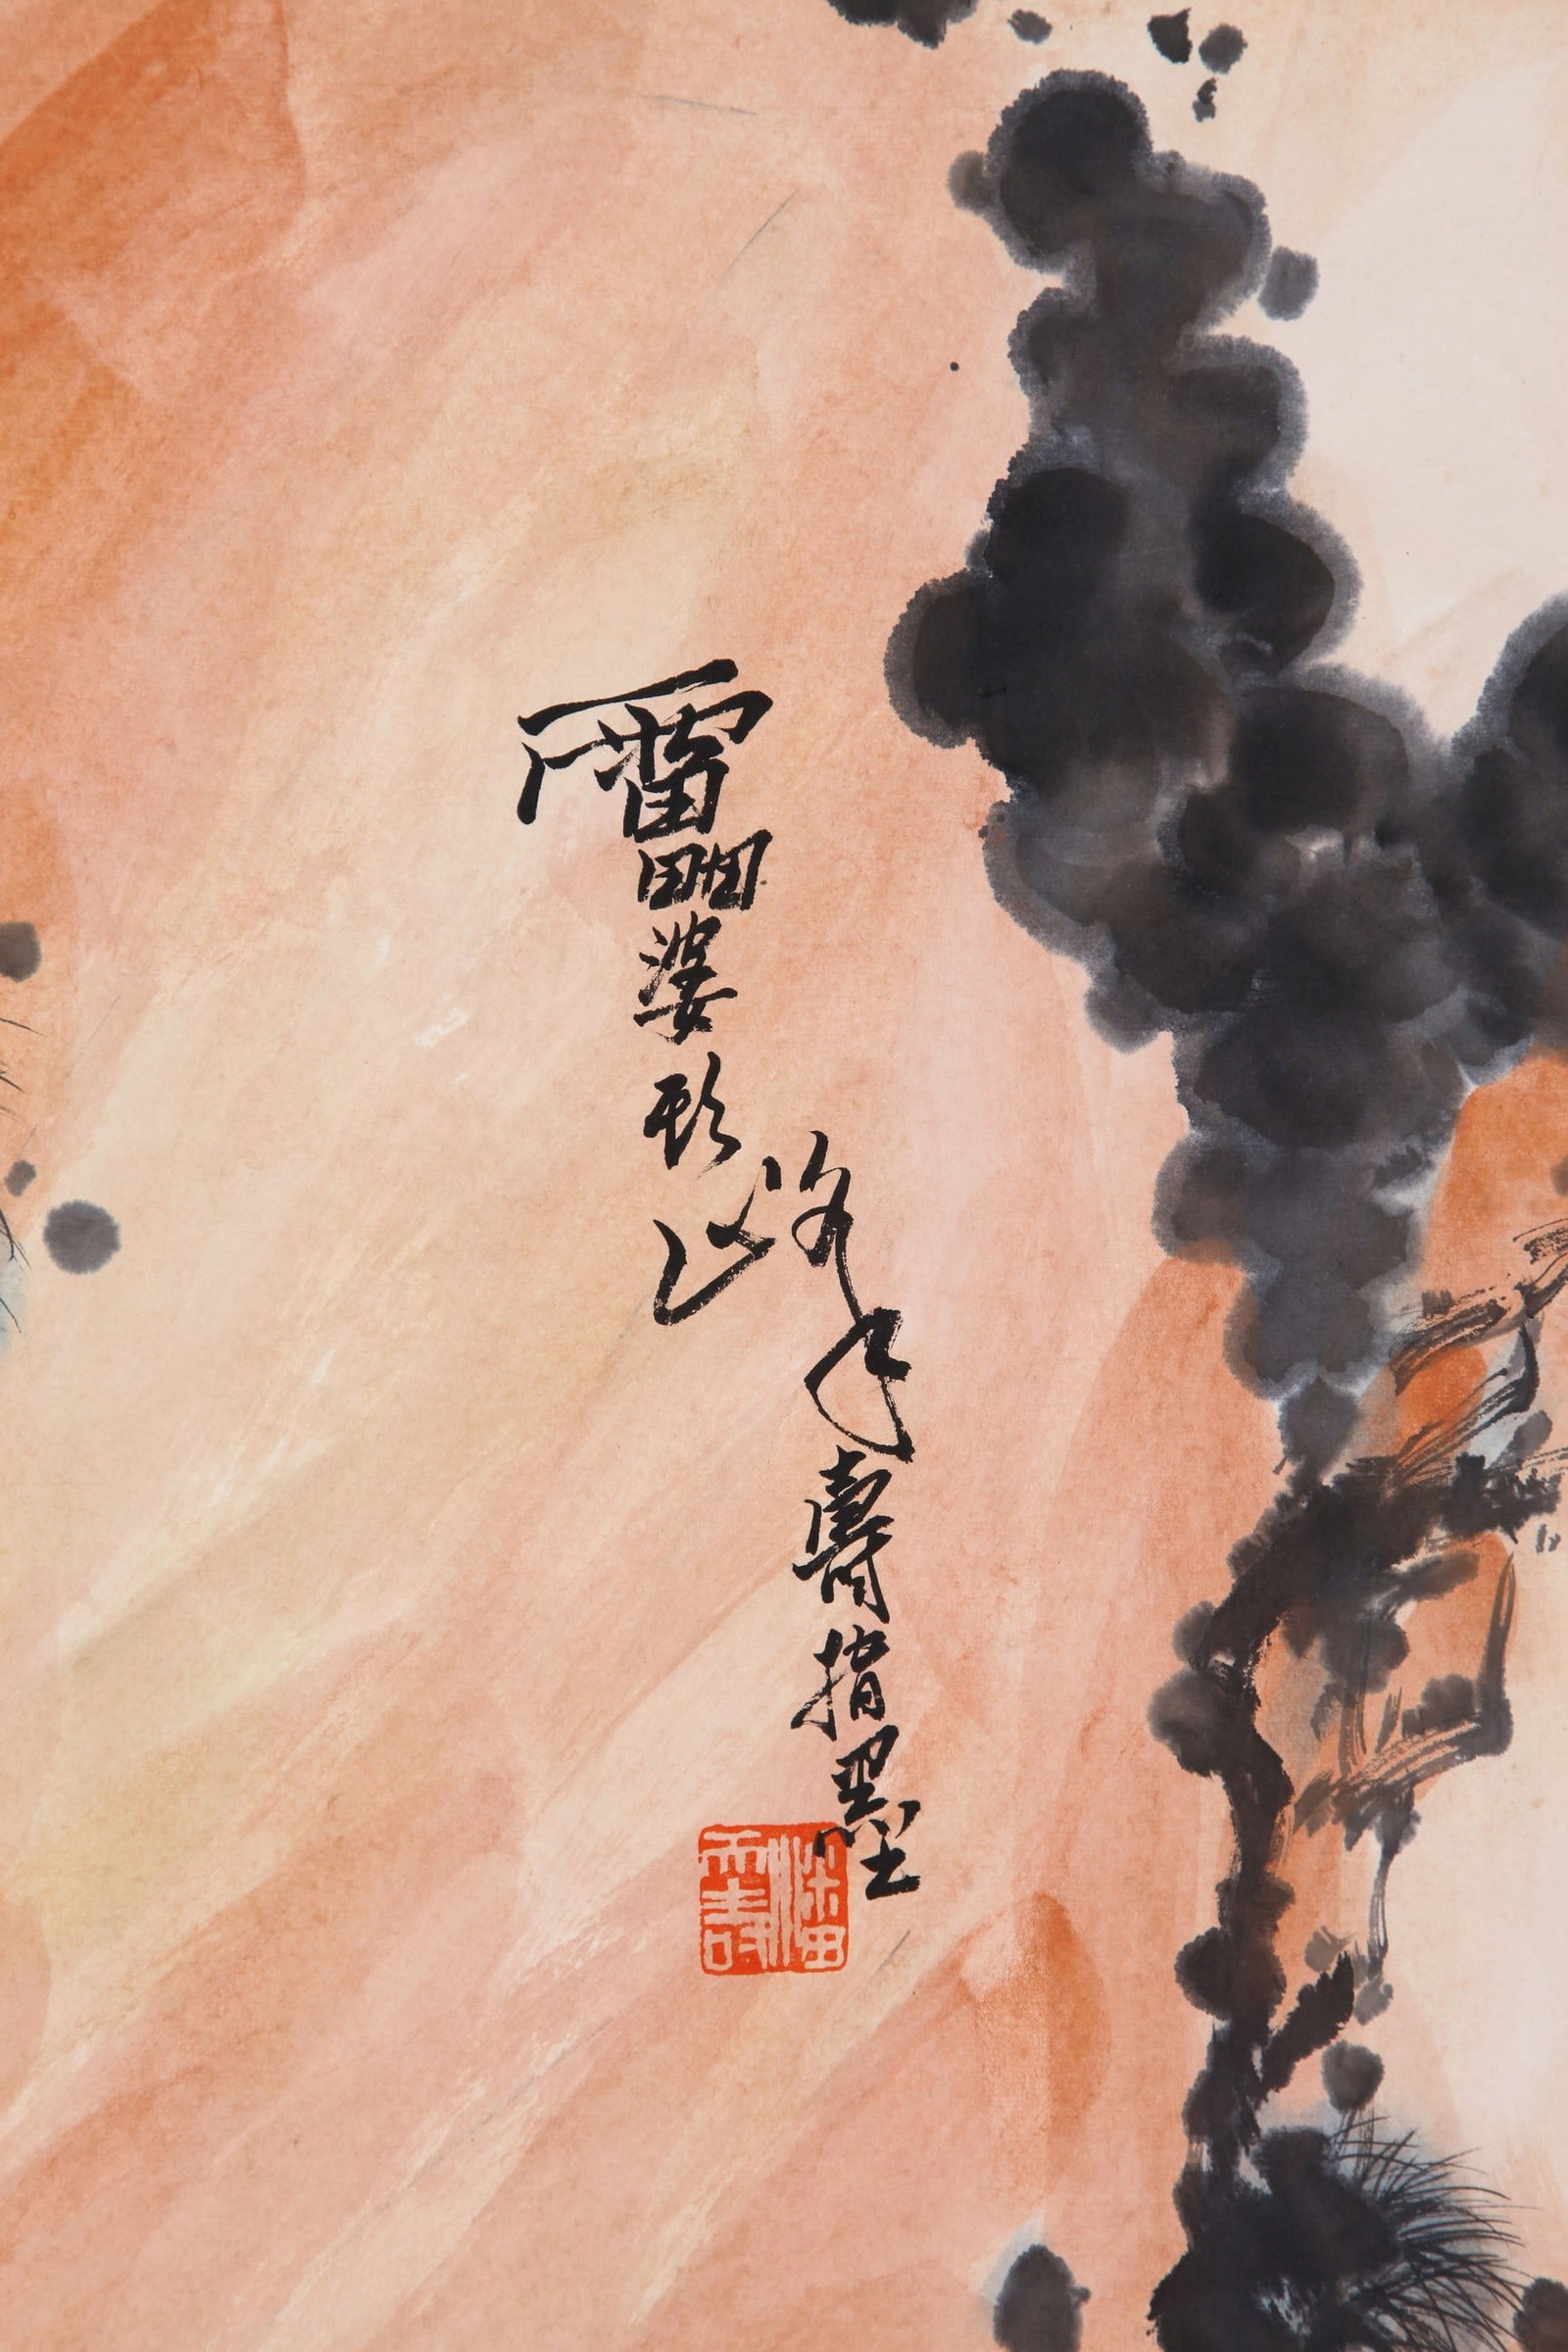 靁婆頭峰壽指墨
潘天壽